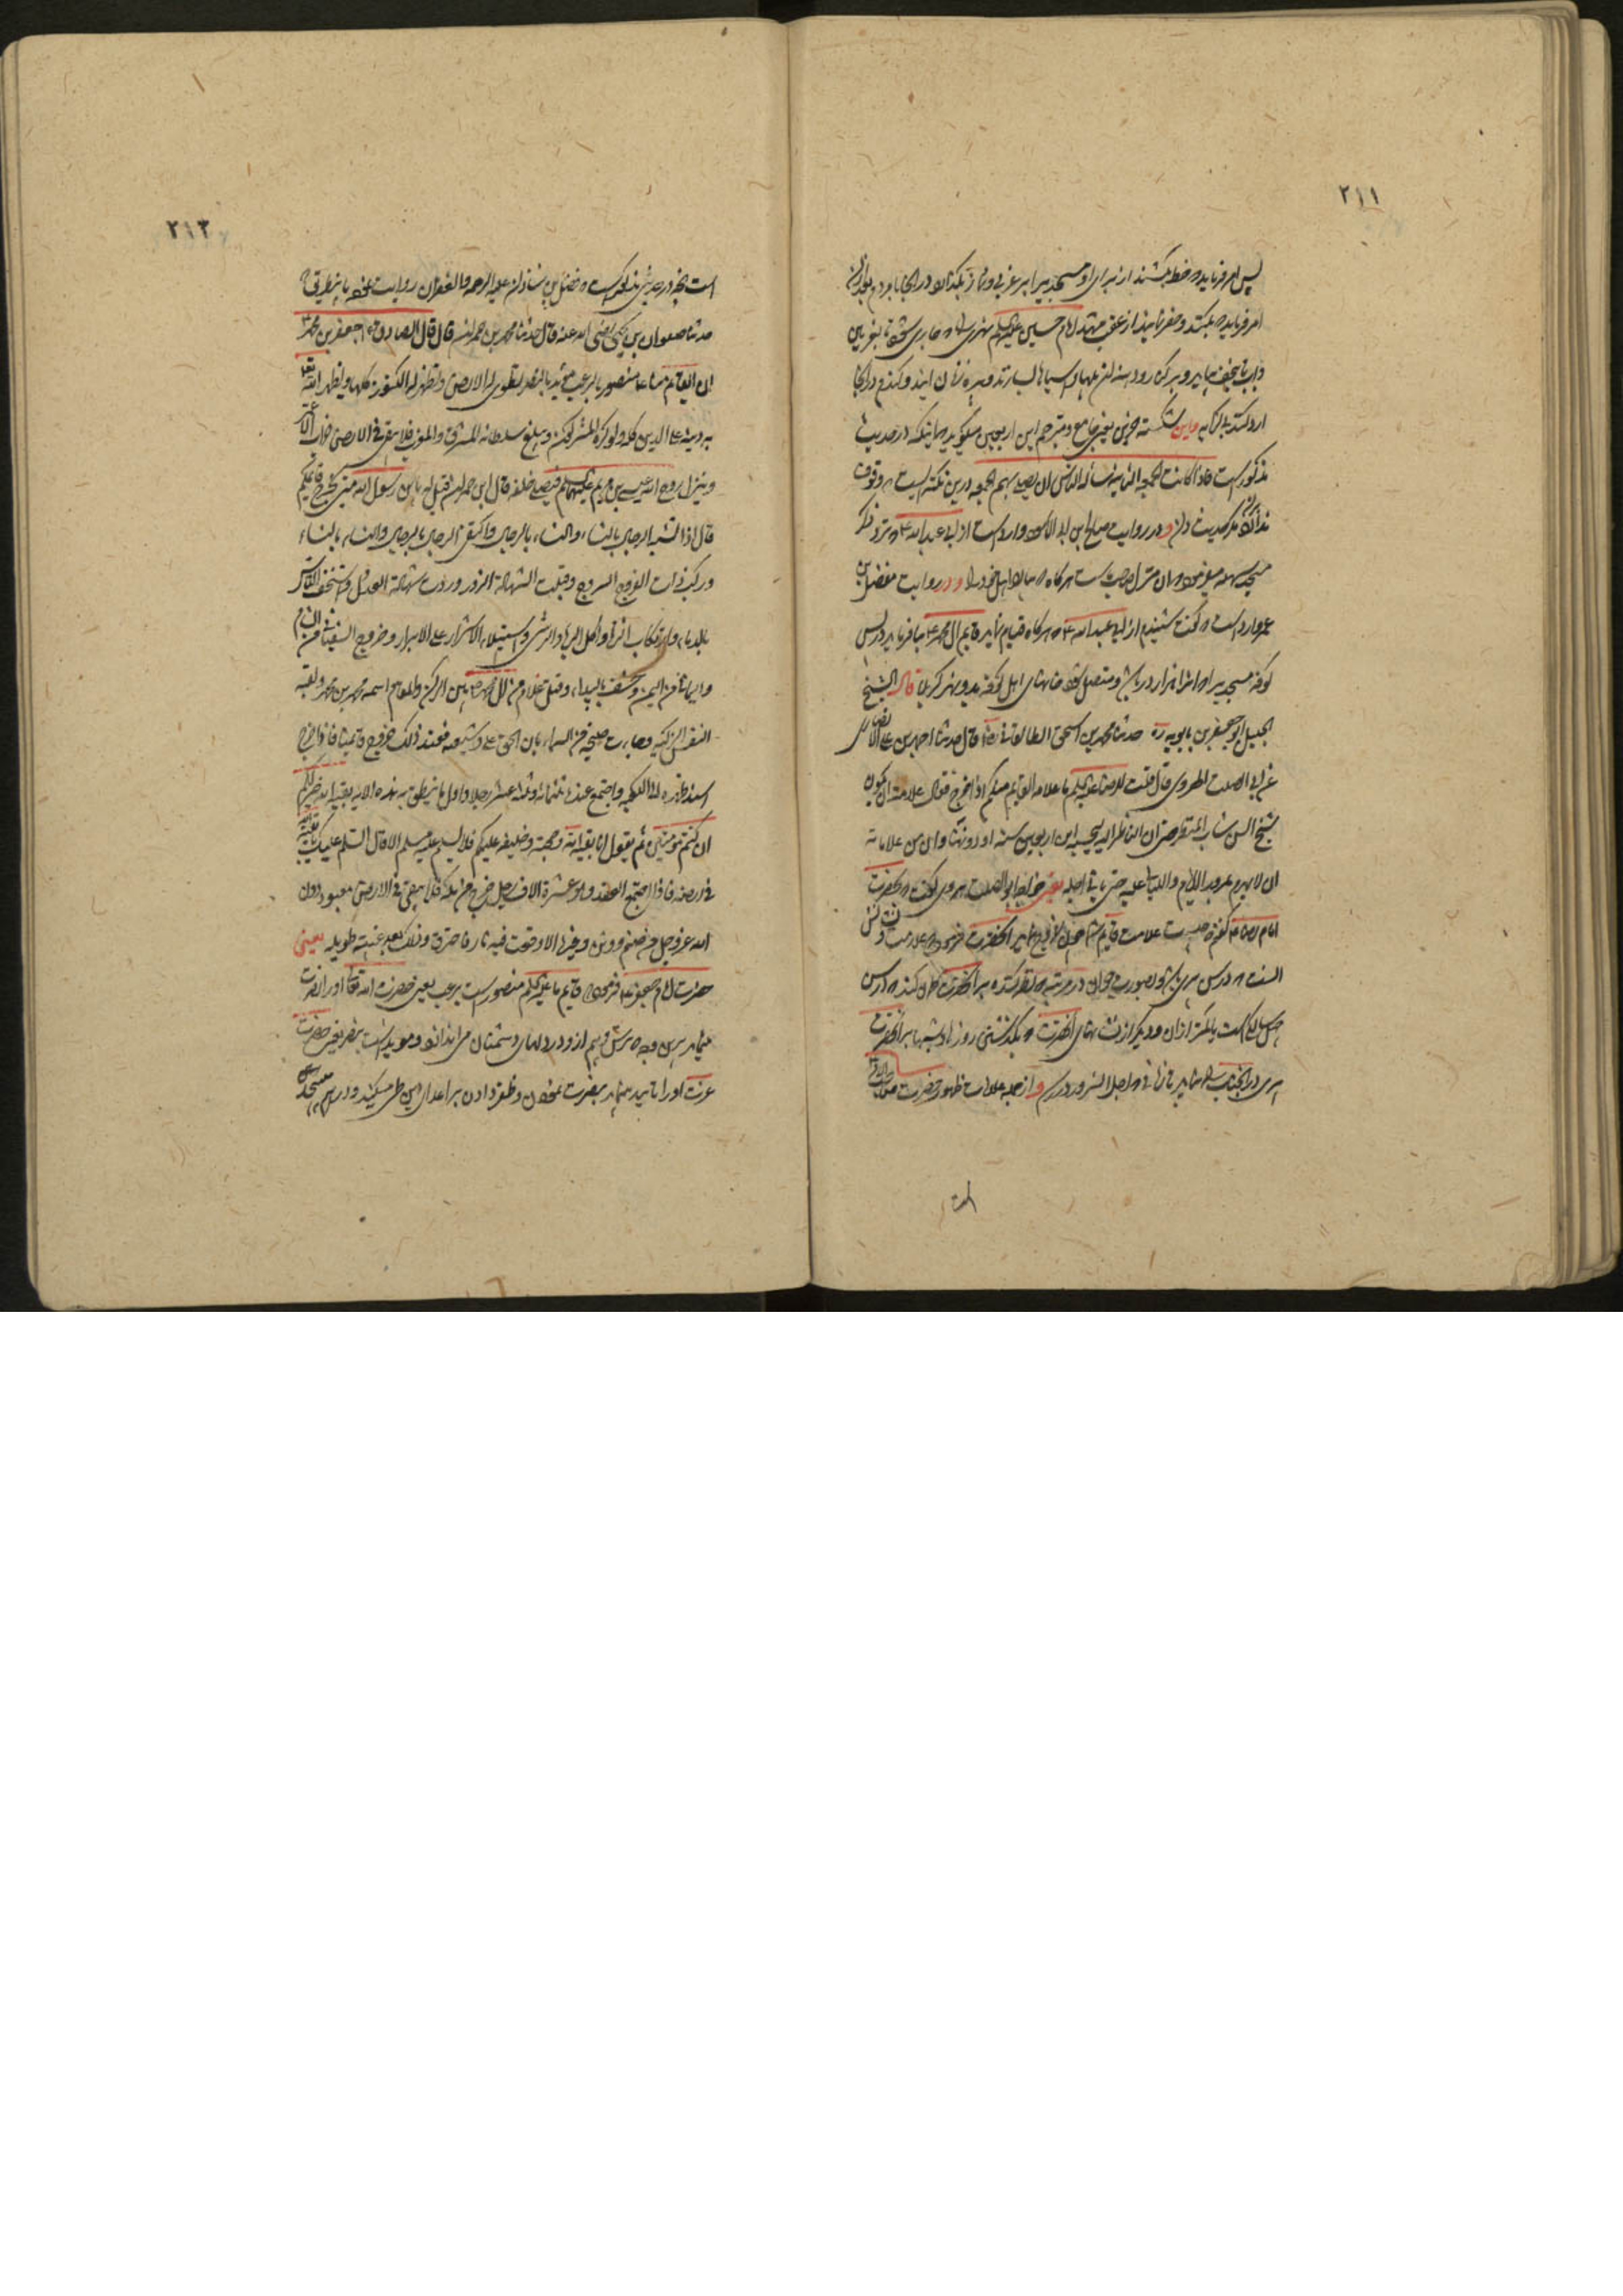 ٢١١
پس امر فرماید که خط بکشند از برای او مسجدی پس امر غریبی و نماز بگذارد در آنجا با مردم بعد از آن
امر فرماید که بکنند و حفر نمایند از عقب مشهد امام حسین علیه السلام نهری که جاری شود تا بغریین
و آب تا نجف بیاید و بر کنار رودخانه آن پلها و آسیاها بسازند و پیره زنان آیند و گندم در آنجا
آرد کنند بی کرایه و این شکسته حزین یعنی جامع و مترجم این اربعین میگوید که اینکه در حدیث
مذکور است فاذا کانت الجمعة الثانیة سأله الناس ان یصلی بهم الجمعة درین نکته ایست که وقوف
در روایت صالح ابن ابی الاسود وارد است از ابی عبد الله ع که نزد او ذکر
مسجد سهله میشد فرمود آن منزل صاحب ماست هرگاه بیاید با اهل خود و در روایت مفضل بن
عمر وارد است که گفت شنیدم از ابی عبد الله ع که هرگاه قیام نماید قایم آل محمد ع بنا فرماید در پس
کوفه مسجدی را که او را هزار در باشد و متصل شود خانهای اهل کوفه بدو نهر کربلا قال الشیخ
الجلیل ابو جعفر بن بابویه ره حدثنا محمد بن ابراهیم بن اسحق الطالقانی رض قال حدثنا احمد بن علی الانصاری
عن ابی الصلت الهروی قال قلت للرضا علیه السلام ما علامة القایم منکم اذا خرج فقال علامته ان یکون
شیخ السن شاب المنظر حتی ان الناظر الیه یحسبه ابن اربعین سنة او دونها و ان من علاماته
ان لا یهرم بمرور الایام و اللیالی علیه حتی یاتی اجله یعنی خواجه ابو الصلت هروی گفت که بحضرت
امام رضا ع گفتم که چیست علامت قایم شما چون خروج نماید آنحضرت فرمود که علامت و نشانش
آنست که در سن پیری باشد و بصورت جوان در مرتبه که نظر کننده بر آنحضرت گمان کند که در سن
چهل سالگی است یا کمتر از آن و دیگر از نشانهای آنحضرت که بگذشتن روزها و شبها بر آنحضرت
پیری در آنجناب راه نیابد تا زمانی که اجل آن سرور در رسد و از جمله علامات ظهور حضرت صاحب الزمان
است
٢١٢
است آنچه در حدیثی مذکور است که فضل بن شاذان علیه الرحمة و الغفران روایت نموده باین طریق که
حدثنا صفوان بن یحیی رضی الله عنه قال حدثنا محمد بن حمران قال قال الصادق جعفر بن محمد ع
ان القایم منا منصور بالرعب مؤید بالنصر تطوی له الارض و تظهر له الکنوز کلها و یظهر الله تعالی
به دینه علی الدین کله و لو کره المشرکون و یبلغ سلطانه المشرق و المغرب فلا یبقی فی الارض خراب الا عمر
و ینزل روح الله عیسی بن مریم علیهما السلام فیصلی خلفه قال ابن حمران فقیل له یا بن رسول الله متی یخرج قایمکم
قال اذا تشبه الرجال بالنساء و النساء بالرجال و اکتفی الرجال بالرجال و النساء بالنساء
و رکب ذات الفروج السروج و قبلت الشهادة الزور و ردت شهادة العدل و استخف الناس
بالدماء و ارتکاب الزنا و اکل الربا و الرشی و استیلاء الاشرار علی الابرار و خروج السفیانی من الشام
و الیمانی من الیمن و خسف بالبیداء و قتل غلام من آل محمد ص بین الرکن و المقام اسمه محمد بن محمد و لقبه
النفس الزکیه و جاءت صیحة من السماء بان الحق مع علی و شیعته فعند ذلک خروج قایمنا فاذا خرج
اسند ظهره الی الکعبه و اجتمع عنده ثلثمائة و ثلثة عشر رجلا و اول ما ینطق به هذه الآیه بقیة الله خیر لکم
ان کنتم مؤمنین ثم یقول انا بقیة الله و حجته و خلیفته علیکم فلا یسلم علیه مسلم الا قال السلام علیک یا بقیة الله
فی ارضه فاذا اجتمع العقد و هو عشرة آلاف رجل خرج من مکه فلا یبقی فی الارض معبود دون
الله عز و جل من صنم و وثن و غیرها الا وقعت فیه نار فاحترق و ذلک بعد غیبته طویله یعنی
حضرت امام جعفر ع فرمود که قایم ما علیه السلام منصور است برعب یعنی حضرت الله تعالی او را نصرت
مینماید باین وجه که ترس و بیم از او در دلهای دشمنان می اندازد و مؤید است بنصر یعنی حضرت
عزت او را تایید مینماید بنصرت نمودن و ظفر دادن بر اعدای دین طی میکند